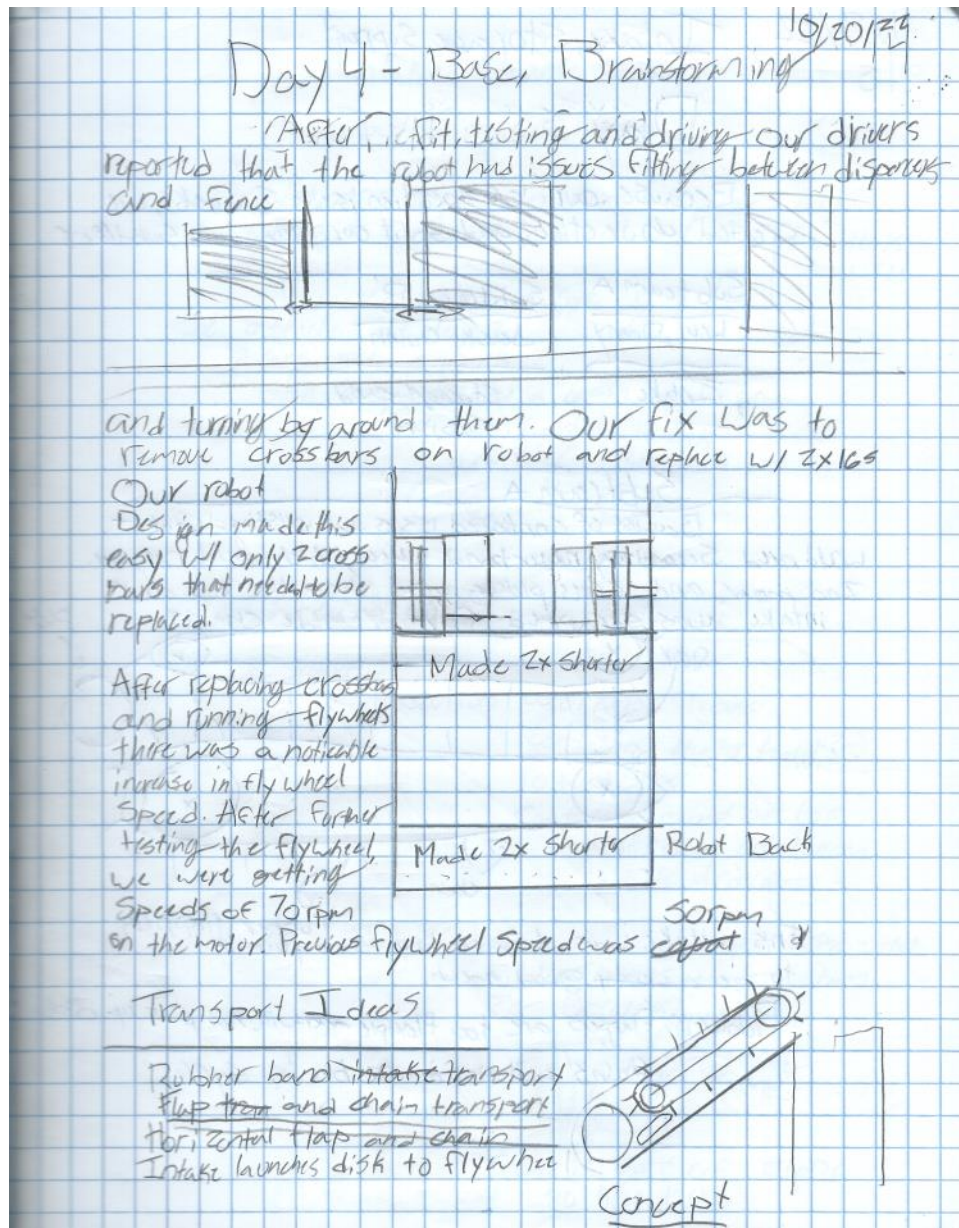 10/20/22
Day 4 - Base, Brainstorming
After, fit, testing and driving our drivers
reported that the robot had issues fitting between dispencers
and fence
and turning by around them. Our fix was to
remove crossbars on robot and replace w/ 2x16s
Our robot
Design made this
easy w/ only 2 cross
bars that needed to be
replaced.
Made 2x Shorter
After replacing crossbars
and running flywheels
there was a noticable
increase in flywheel
Speed. After further
testing the flywheel,
we were getting
Made 2x Shorter Robot Back
Speeds of 70rpm
50rpm
on the motor. Previous flywheel Speed was
Transport Ideas
Rubber band intake transport
Flap tran and chain transport
Horizontal flap and chain
Intake launches disk to flywhee
Concept